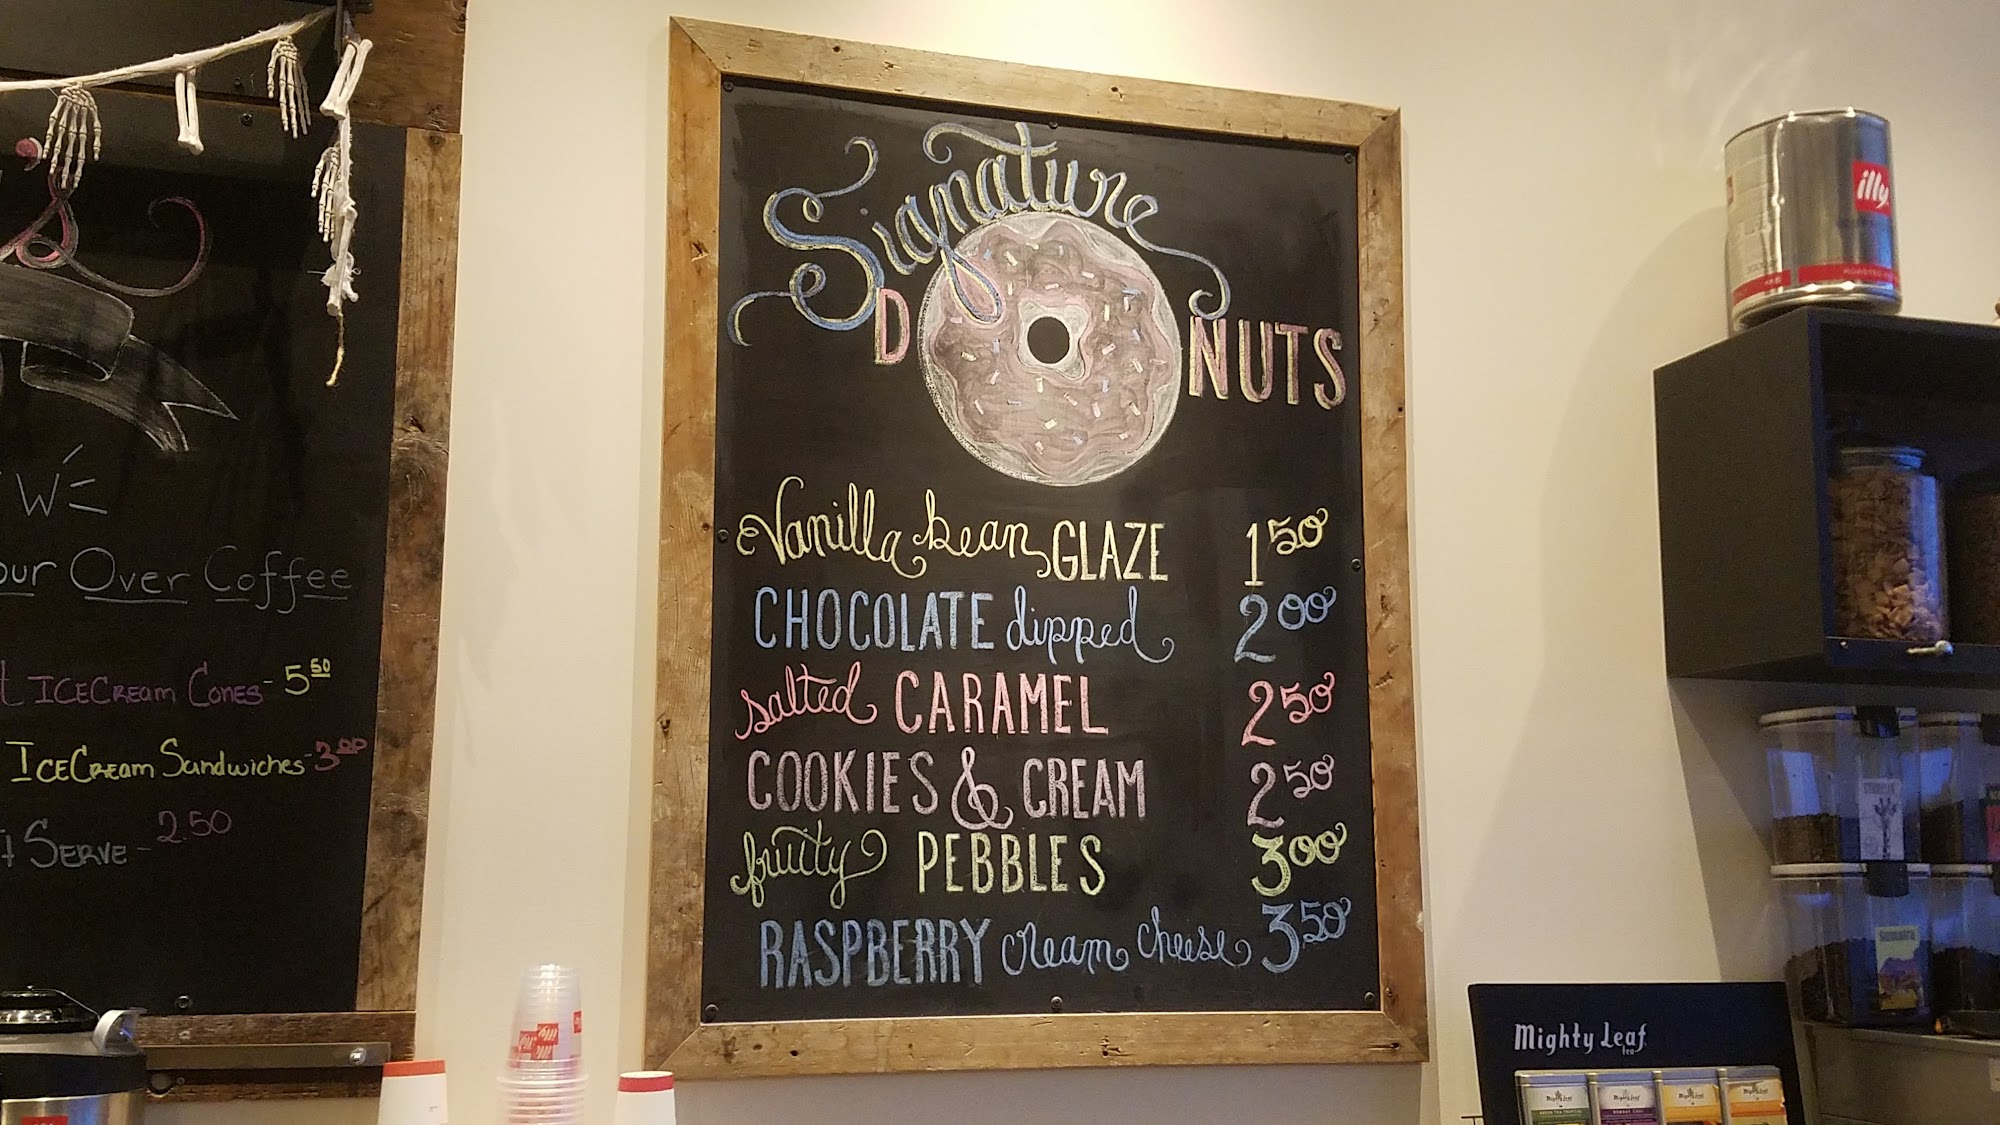 Signature
DONUTS
Vanilla bean GLAZE 1 50
CHOCOLATE dipped 2 00
salted CARAMEL 2 50
COOKIES & CREAM 2 50
fruity PEBBLES 3 00
RASPBERRY cream cheese 3 50
W
Over Coffee
ICECREAM CONES - 5 50
ICECREAM Sandwiches - 3 00
SERVE - 2.50
illy
Sumatra
Mighty Leaf
tea